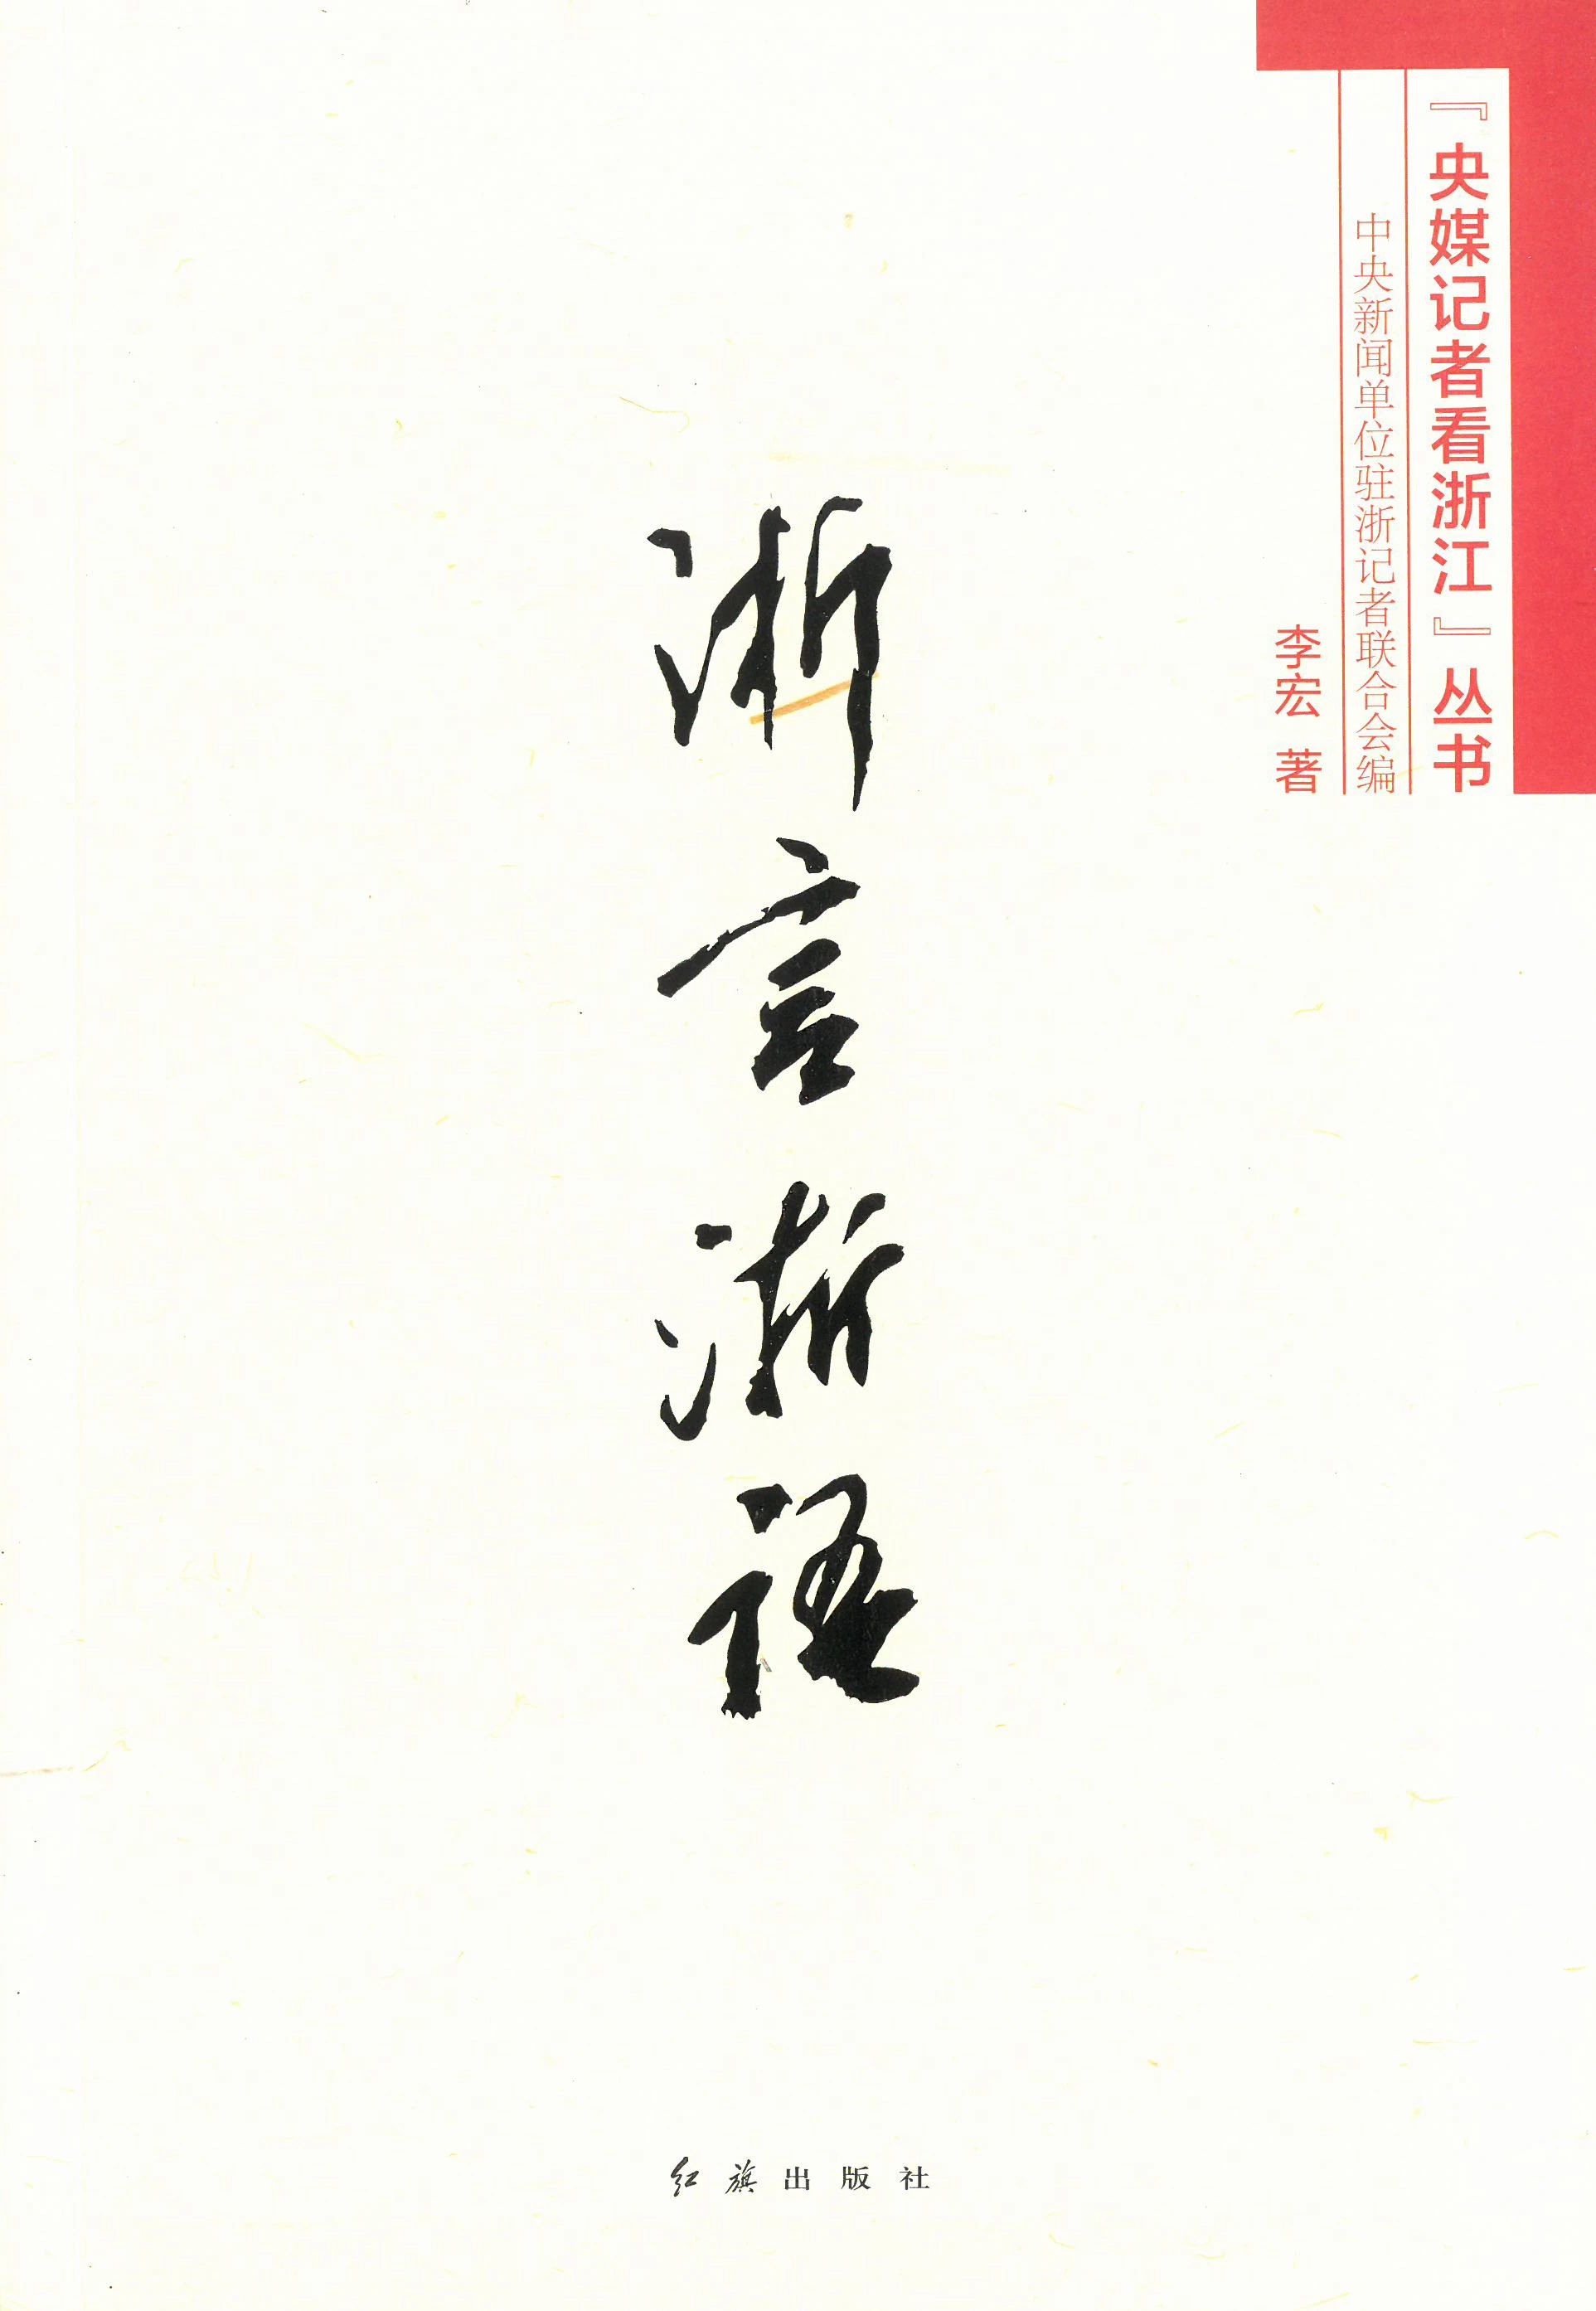 『央媒记者看浙江』丛书
中央新闻单位驻浙记者联合会编
李宏 著
浙言浙语
红旗出版社